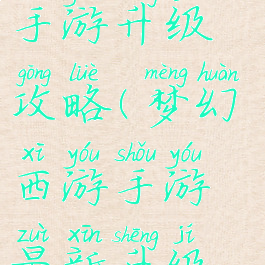 手游升级
gōng lüè mèng huàn
攻略(梦幻
xī yóu shǒu yóu
西游手游
zuì xīn shēng jí
最新升级